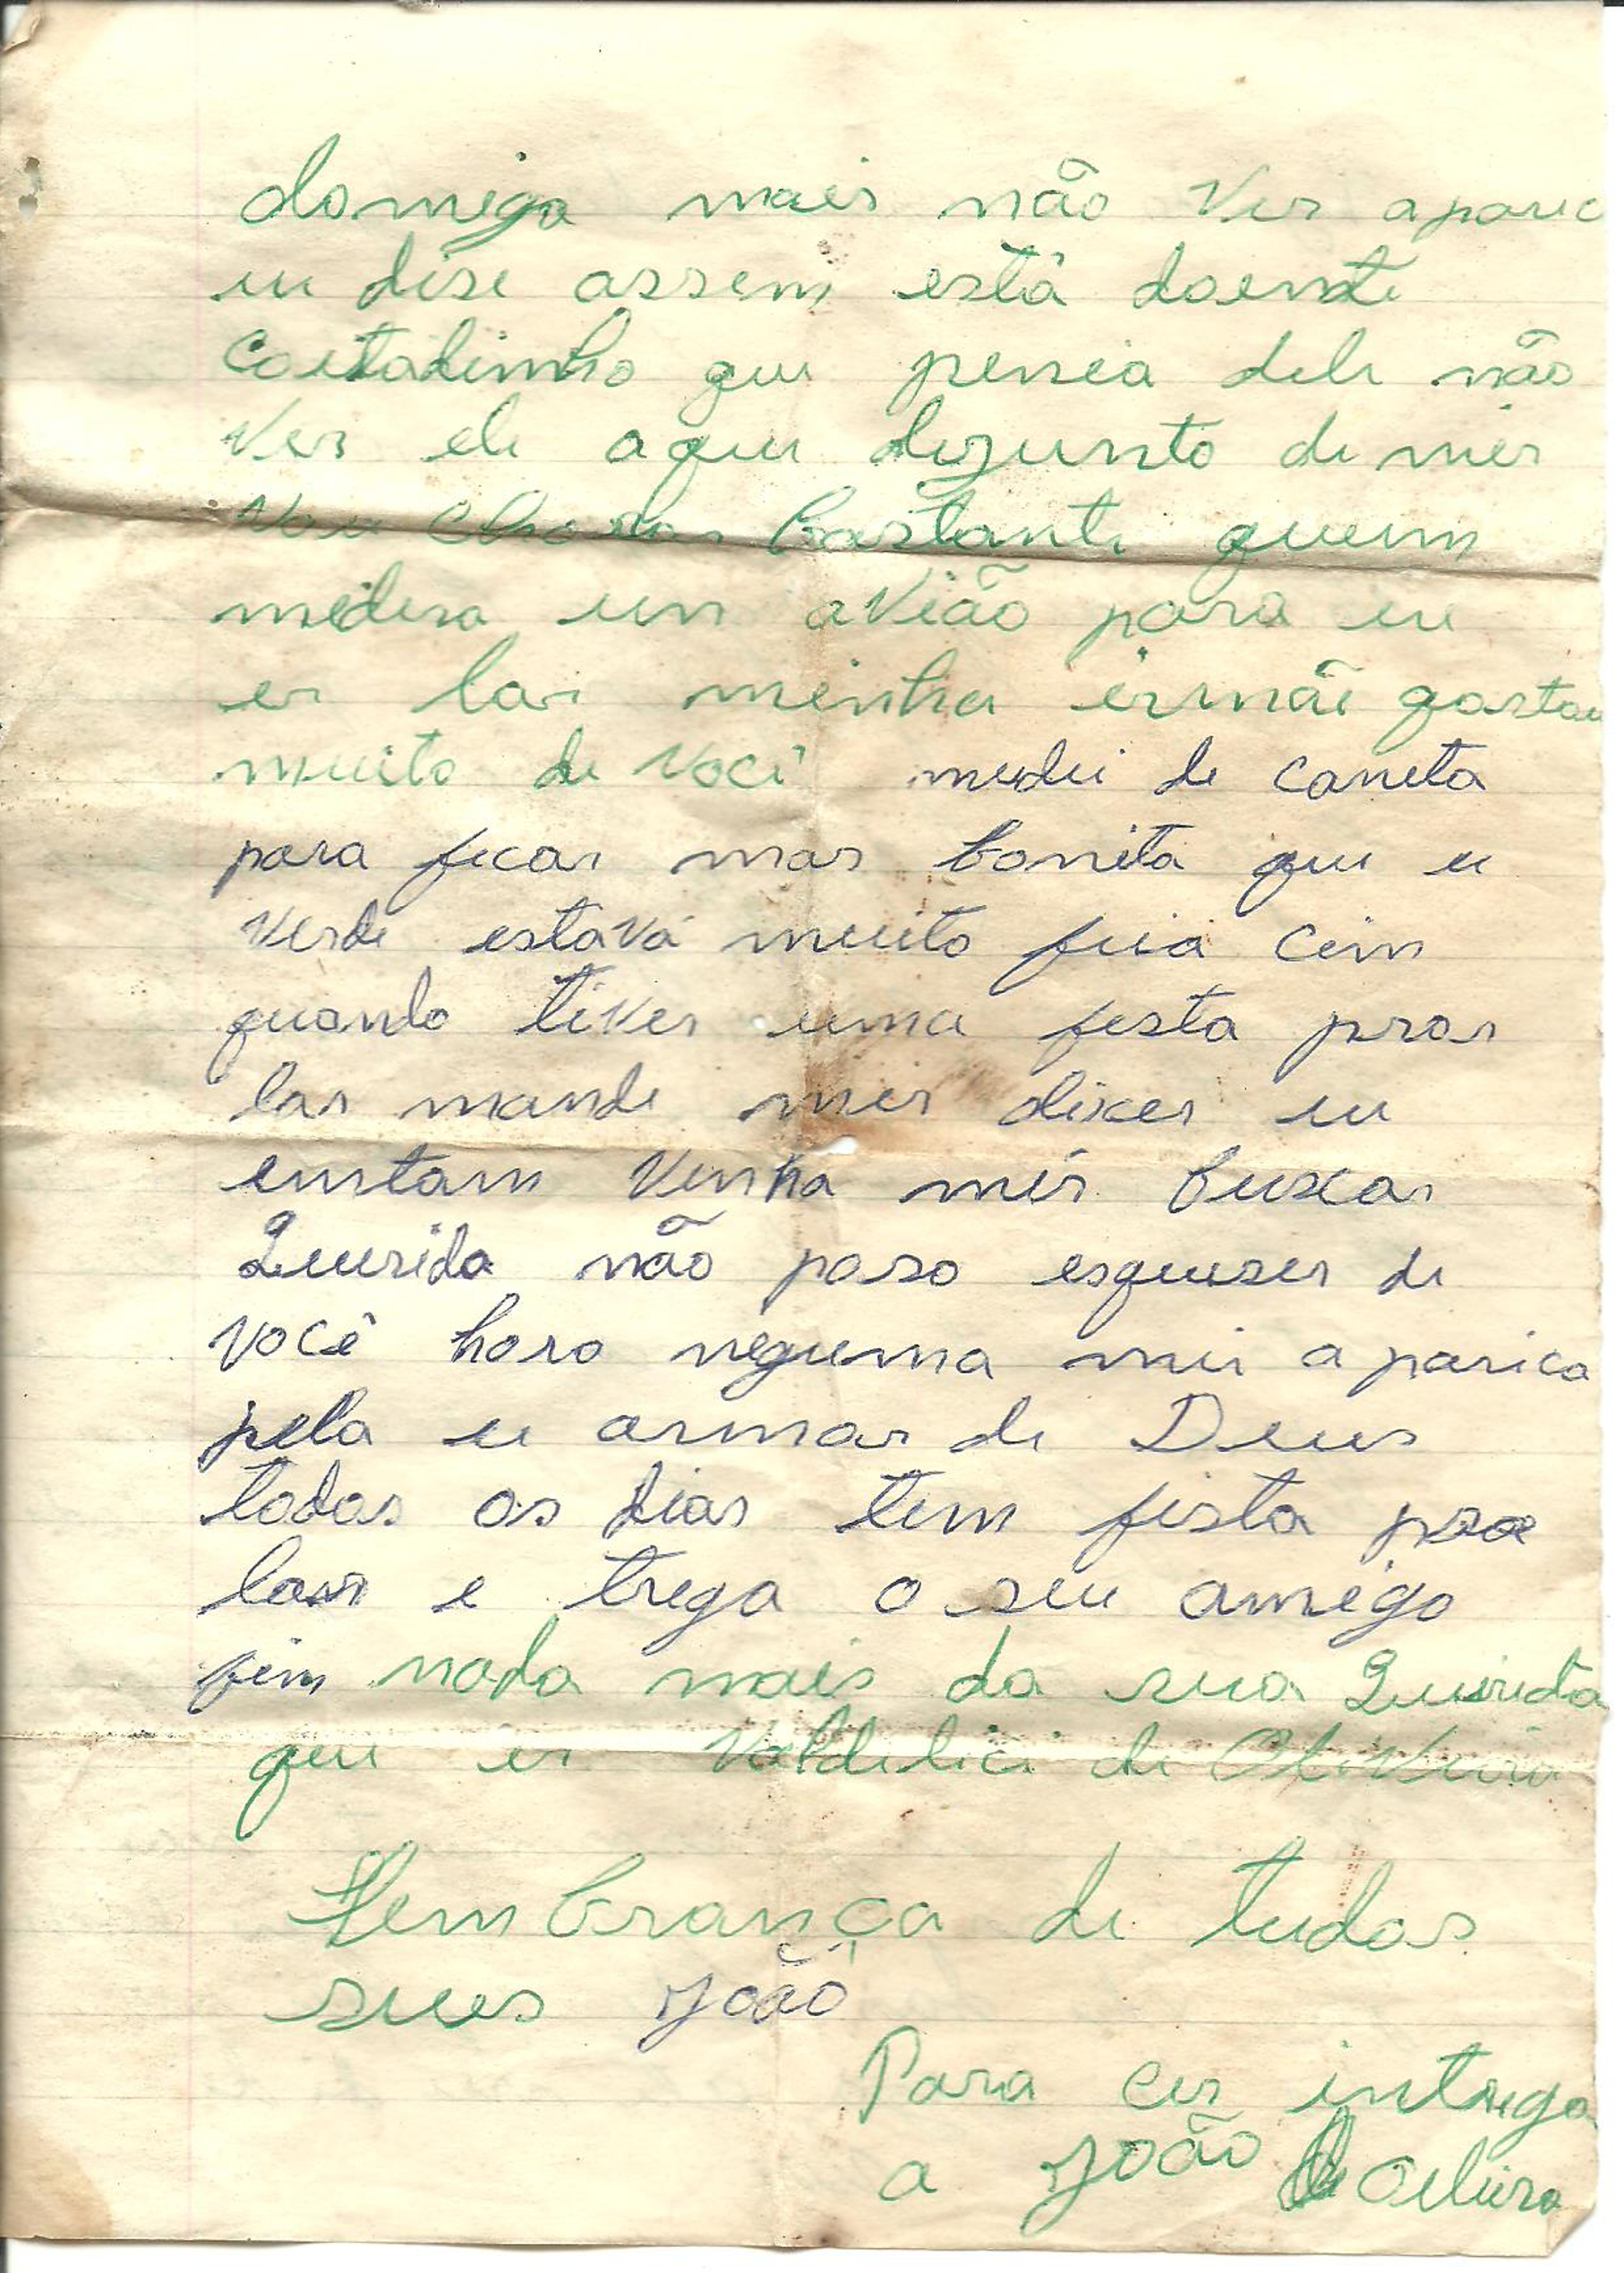 domiga mais não Ver aparec
eu dise assem está doente
Coitadinho que peneia dele não
Ver ele aqui dejunto de mir
Vou Chorar bastante quem
midera um avião para eu
er lar minha irmãe gostou
muito de Você mudei de caneta
para ficar mas bonita que u
Verde estava muito feia cim
quando tiver uma festa prar
lar mande mir dixer eu
emtam Venha mir buscar
Querida não poso esqueser de
Você hora neguma mir a parica
pela u armor de Deus
todos os dias tem festa pra
lar e trega o seu amigo
fim nada mais da sua Queirida
que er Valdelici de Oliveira
Lembrança de tudos
sues João
Para cer intrega
a João de Oeliira